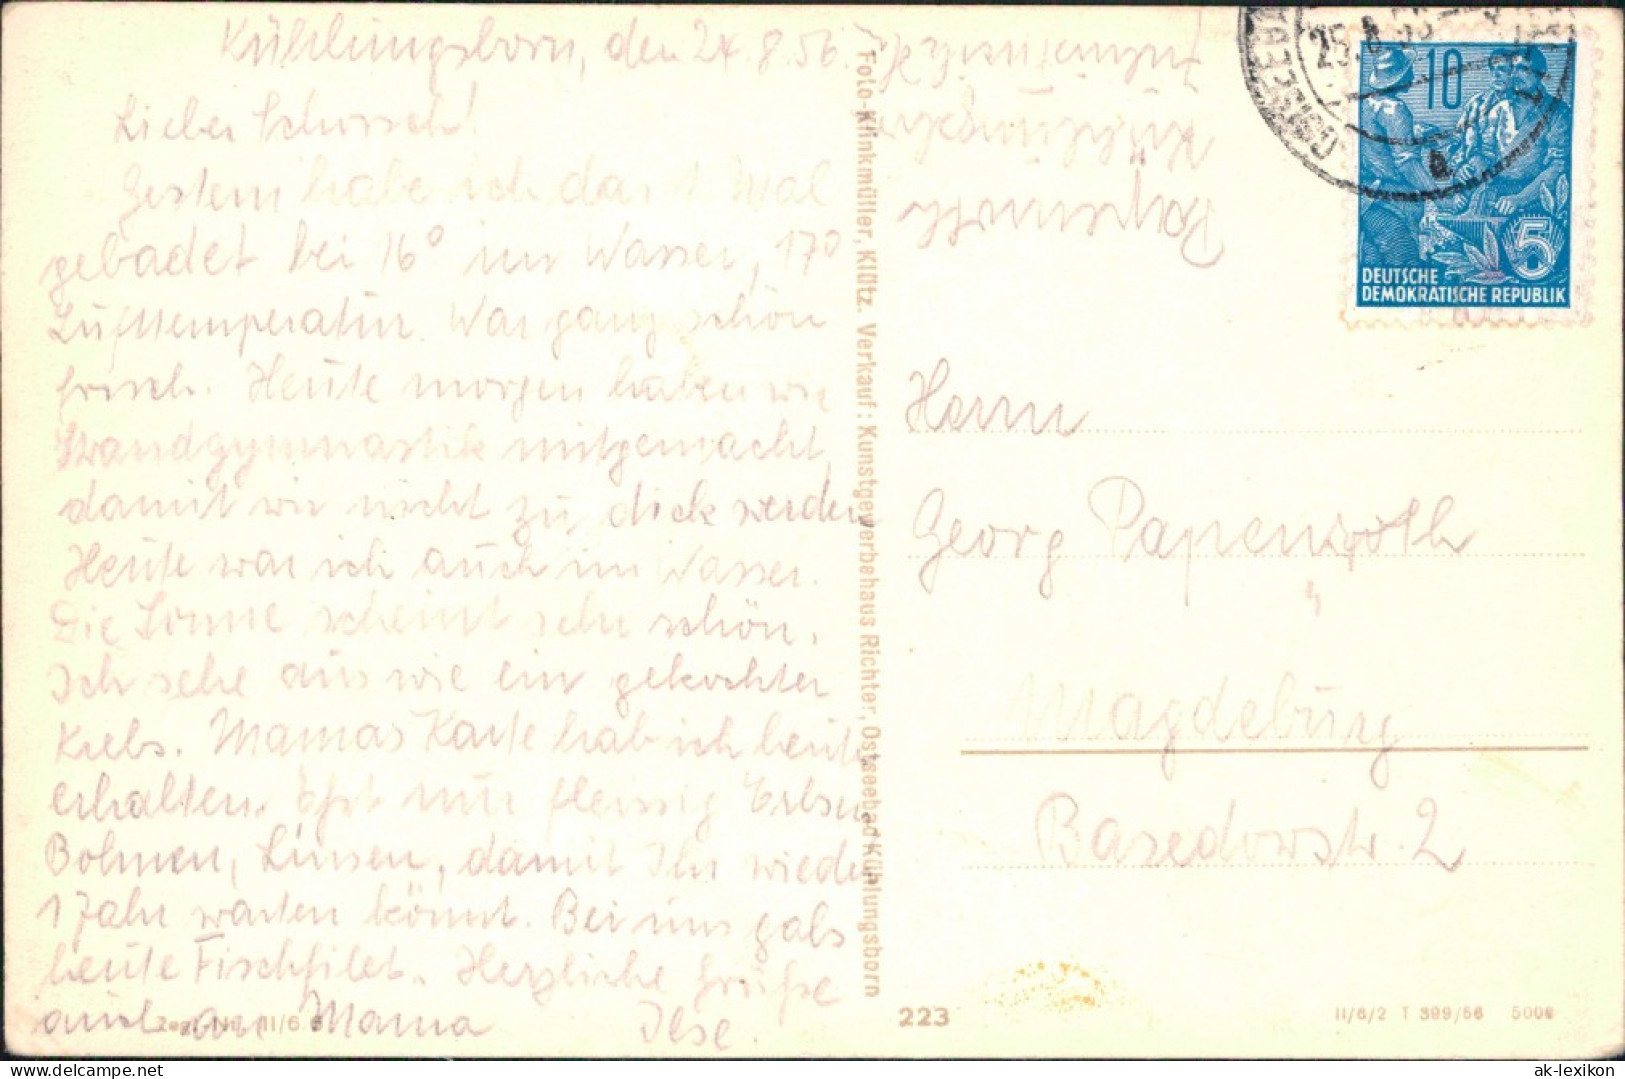 Kühlungsborn, den 24.8.56.
Lieber Schorsch!
Gestern habe ich das 1. Mal
gebadet bei 16° im Wasser, 17°
Lufttemperatur. War ganz schön
frisch. Heute morgen haben wir
Strandgymnastik mitgemacht,
damit wir nicht zu dick werden
Heute war ich auch im Wasser.
Die Sonne scheint sehr schön.
Ich sehe aus wie ein gekochter
Krebs. Mamas Karte hab ich heute
erhalten. Eßt nur fleissig Erbsen
Bohnen, Linsen, damit Ihr wieder
1 Jahr warten könnt. Bei uns gabs
heute Fischfilet. Herzliche Grüße
auch an Mama Ilse.
II/6
Foto-Klinkmüller, Klütz. Verkauf: Kunstgewerbehaus Richter, Ostseebad Kühlungsborn
Papenroth
Kühlungsborn
25.8.56
10
5
DEUTSCHE
DEMOKRATISCHE REPUBLIK
Herrn
Georg Papenroth
Magdeburg
Basedowstr. 2
223
II/6/2 T 399/56 5000
hippostcard.com
ak-lexikon